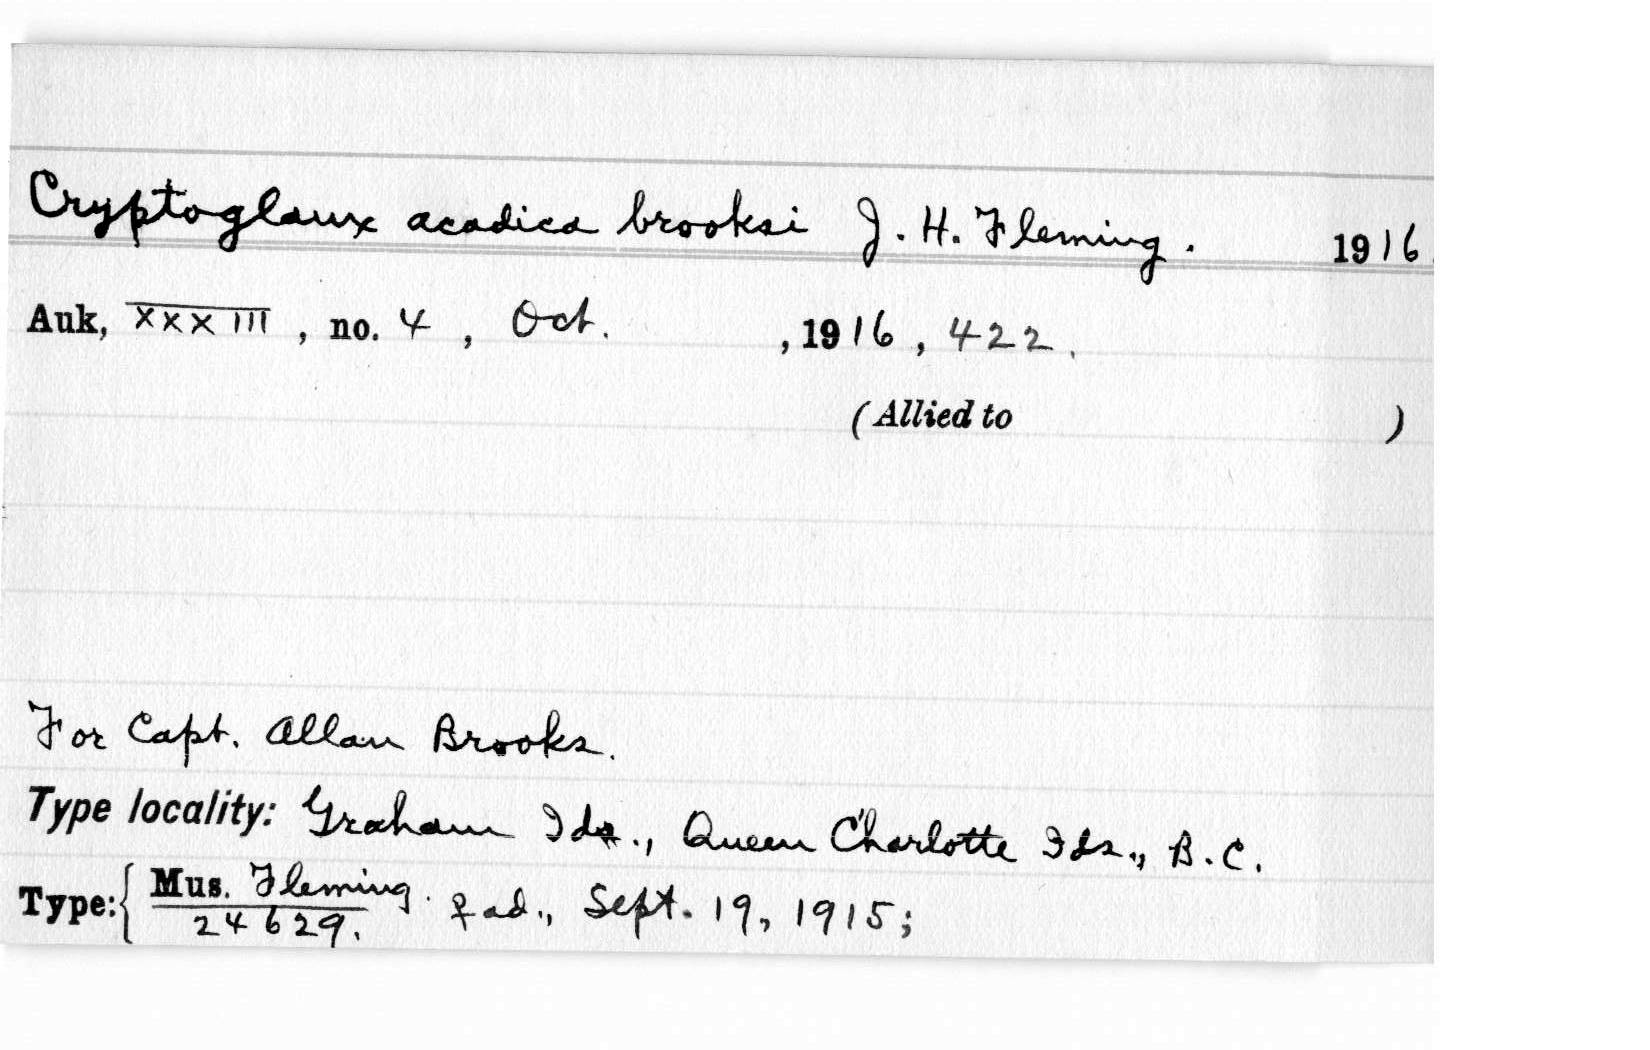 Cryptoglaux acadica brooksi J. H. Fleming. 1916.
Auk, XXXIII, no. 4, Oct. , 1916, 422.
(Allied to )
For Capt. Allan Brooks.
Type locality: Graham Ids., Queen Charlotte Ids., B.C.
Type:{ Mus. Fleming. ♀ ad., Sept. 19, 1915;
24629.